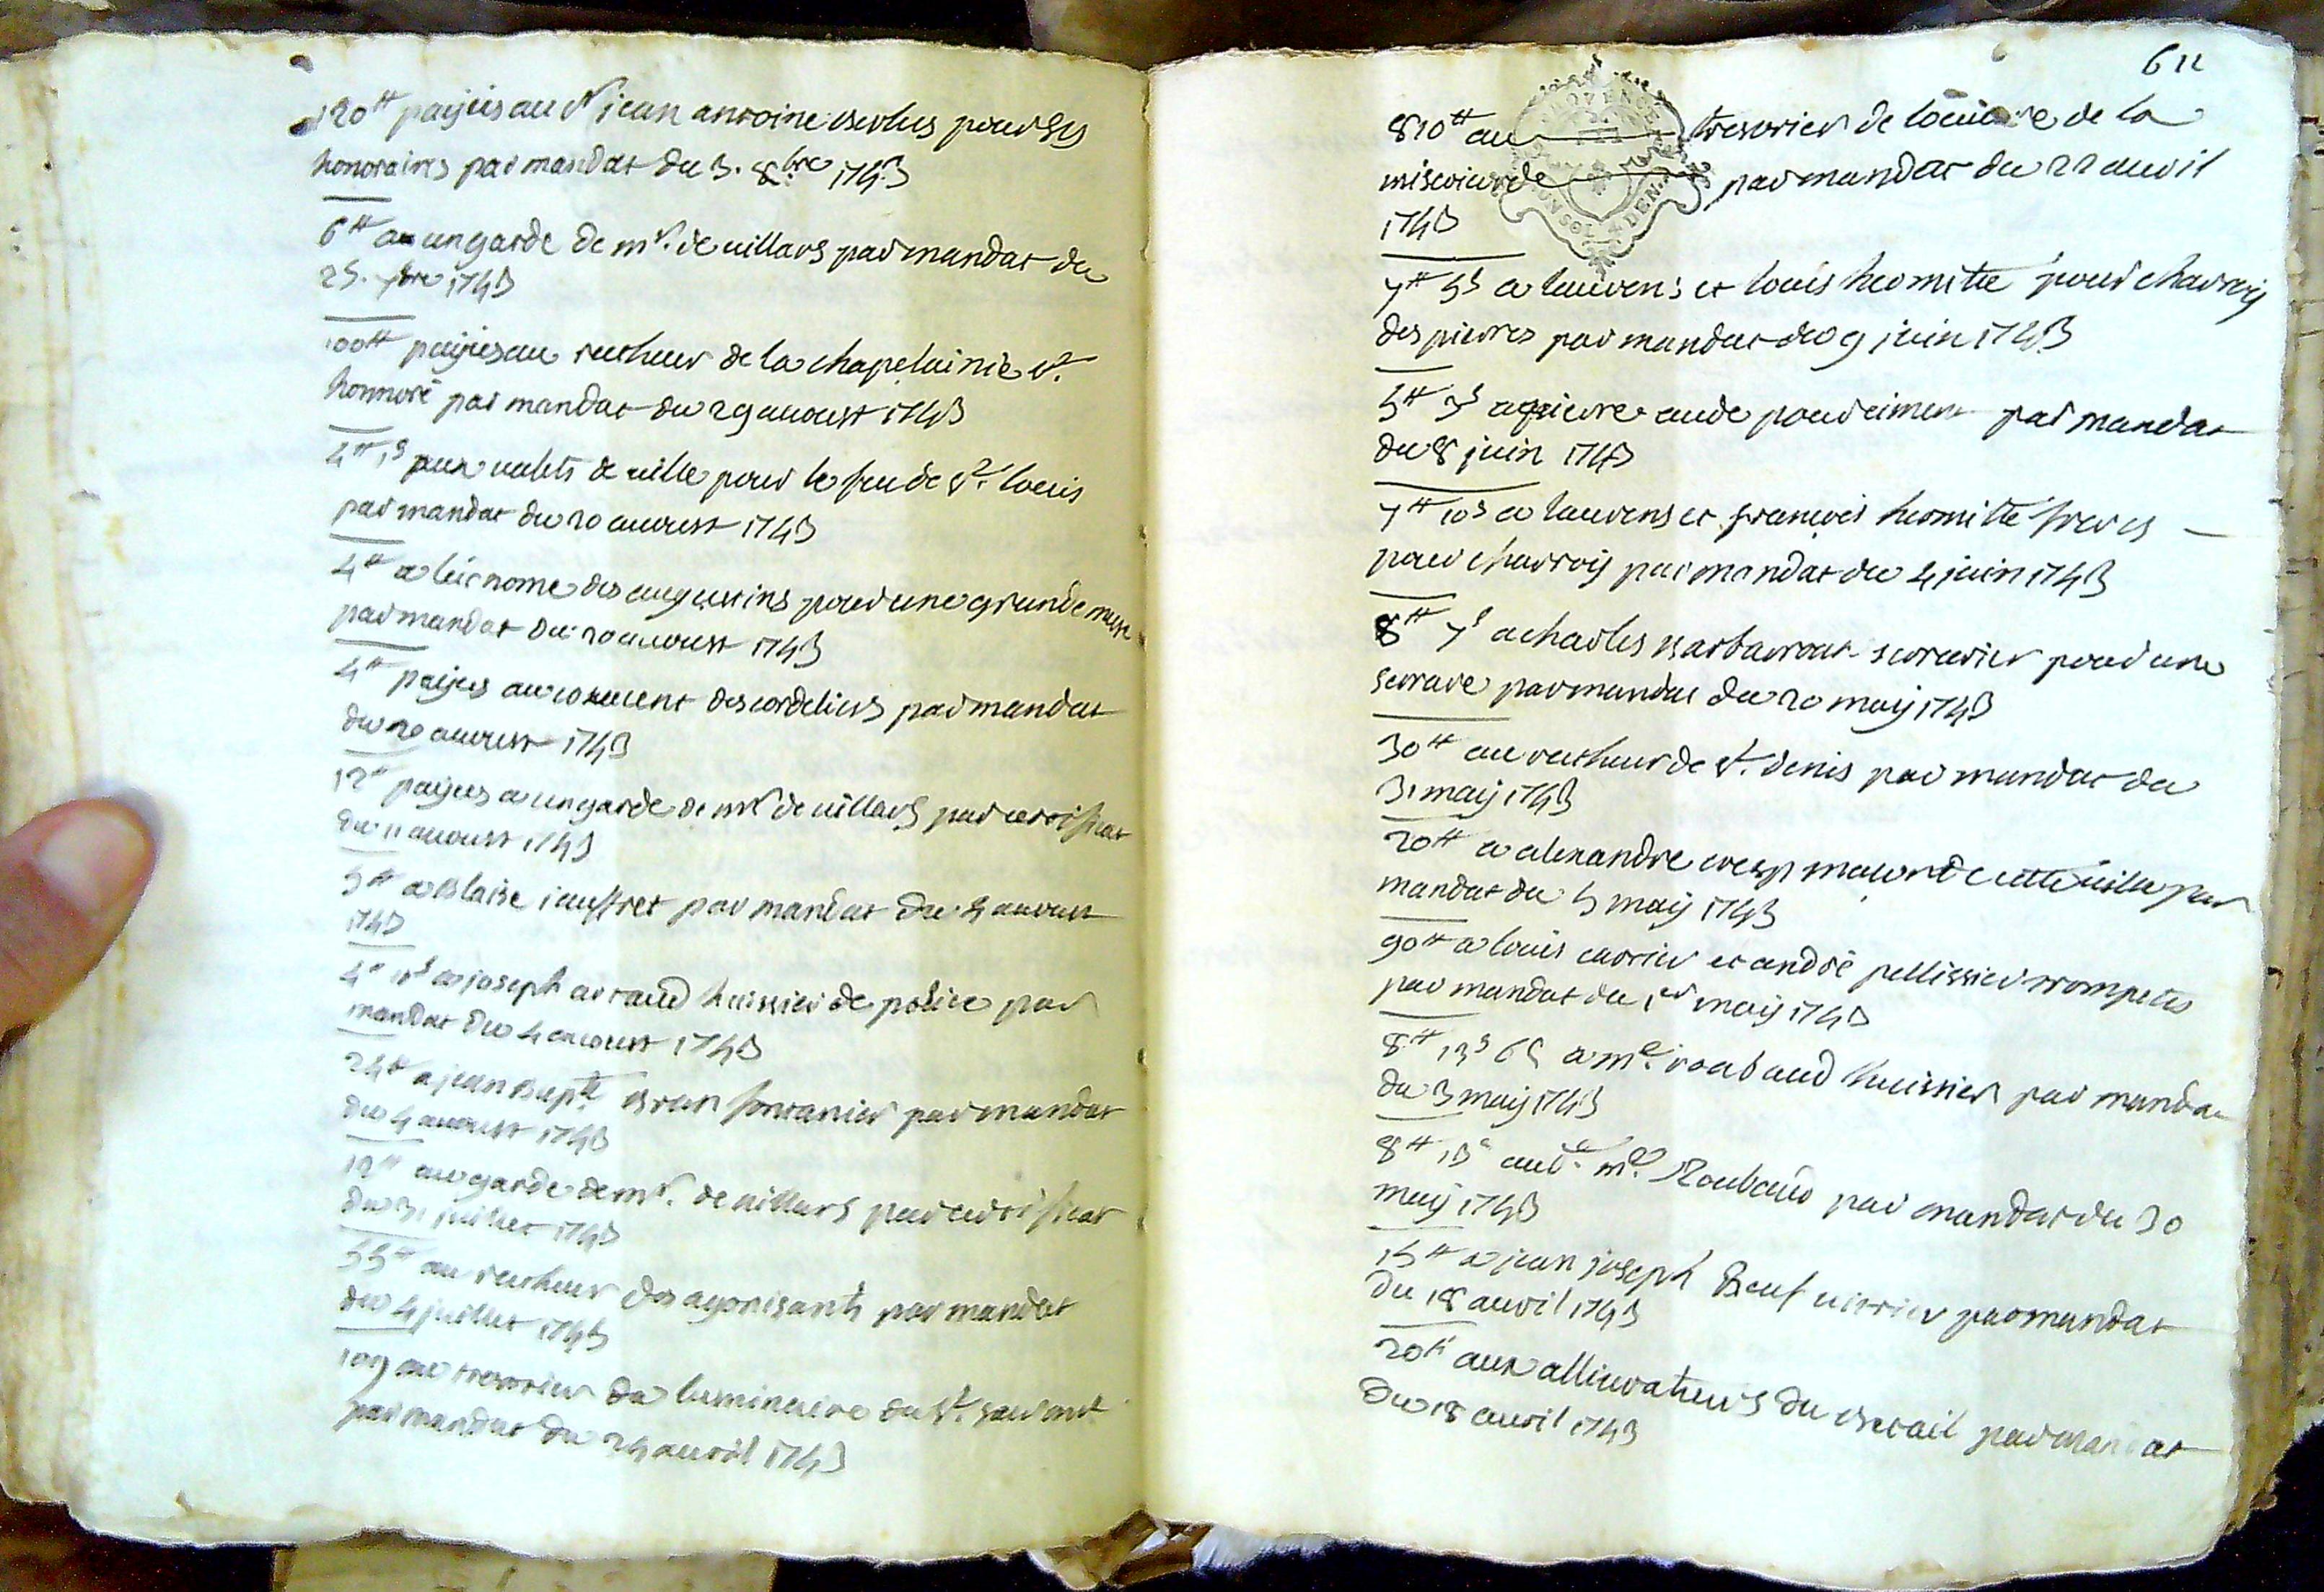 120ᵗᵗ payées au Sʳ jean antoine esclus pour ses
honoraires par mandat du 3. 8bre 1743
6ᵗᵗ a un garde de mʳ. de uillars par mandat du
25. 7bre 1743
100ᵗᵗ payées au recteur de la chapelainie Sᵗ.
honnoré par mandat du 29 aoust 1743
4ᵗᵗ 1ˢ aux ualets de uille pour le feu de Sᵗ. louis
par mandat du 20 auoust 1743
4ᵗᵗ a leiconome des augustins pour une grande messe
par mandat du 20 auoust 1743
4ᵗᵗ payées au conuent des cordeliers par mandat
du 20 auoust 1743
12ᵗᵗ payées a un garde de mʳ de uillars par certificat
du 11 auoust 1743
5ᵗᵗ a Blaise iauffret par mandat du 4 auoust
1743
4ᵗᵗ a joseph artaud huissier de police par
mandat du 4 auoust 1743
24ᵗᵗ a jean Bapᵗᵉ Brun fontanier par mandat
du 4 auoust 1743
12ᵗᵗ au garde de mʳ. de uillars par certificat
du 31 juillet 1743
55ᵗᵗ au recteur des agonisants par mandat
du 4 juillet 1743
109 au tresorier du luminaire du Sᵗ.
par mandat du 24 auril 1743
611
810ᵗᵗ au tresorier de l'oeuure de la
misericorde par mandat du 22 auril
1743
PROVENCE
DEN
7ᵗᵗ 5ˢ a laurens et louis hermitte pour charroy
des pierres par mandat du 9 juin 1743
5ᵗᵗ 3ˢ a pierre aude pour ciment par mandat
du 8 juin 1743
7ᵗᵗ 10ˢ a laurens et françois hermitte freres
pour charroy par mandat du 4 juin 1743
8ᵗᵗ 7ˢ a charles barbarroux serrurier pour une
serrure par mandat du 20 may 1743
30ᵗᵗ au recteur de Sᵗ. denis par mandat du
31 may 1743
20ᵗᵗ a alexandre cresp de cette uille par
mandat du 5 may 1743
90ᵗᵗ a louis currier et andré pellissier trompetes
par mandat du 1er may 1743
8ᵗᵗ 13ˢ 6d a mᵉ. roubaud huissier par mandat
du 3 may 1743
8ᵗᵗ 13ˢ aud. mᵉ. Roubaud par mandat du 30
may 1743
15ᵗᵗ a jean joseph Beuf uitrier par mandat
du 18 auril 1743
20ᵗᵗ aux alliurateurs du betail par mandat
du 18 auril 1743